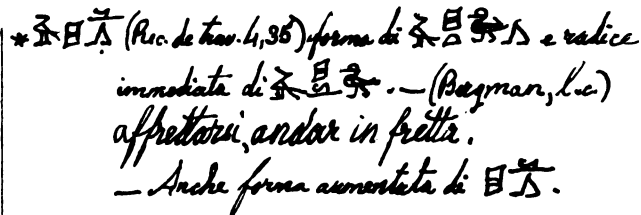 * (Rec. de trav. 4, 35) forma di e radice
immediata di . — (Bergman, l.c.)
affrettarsi, andar in fretta.
— Anche forma aumentata di .